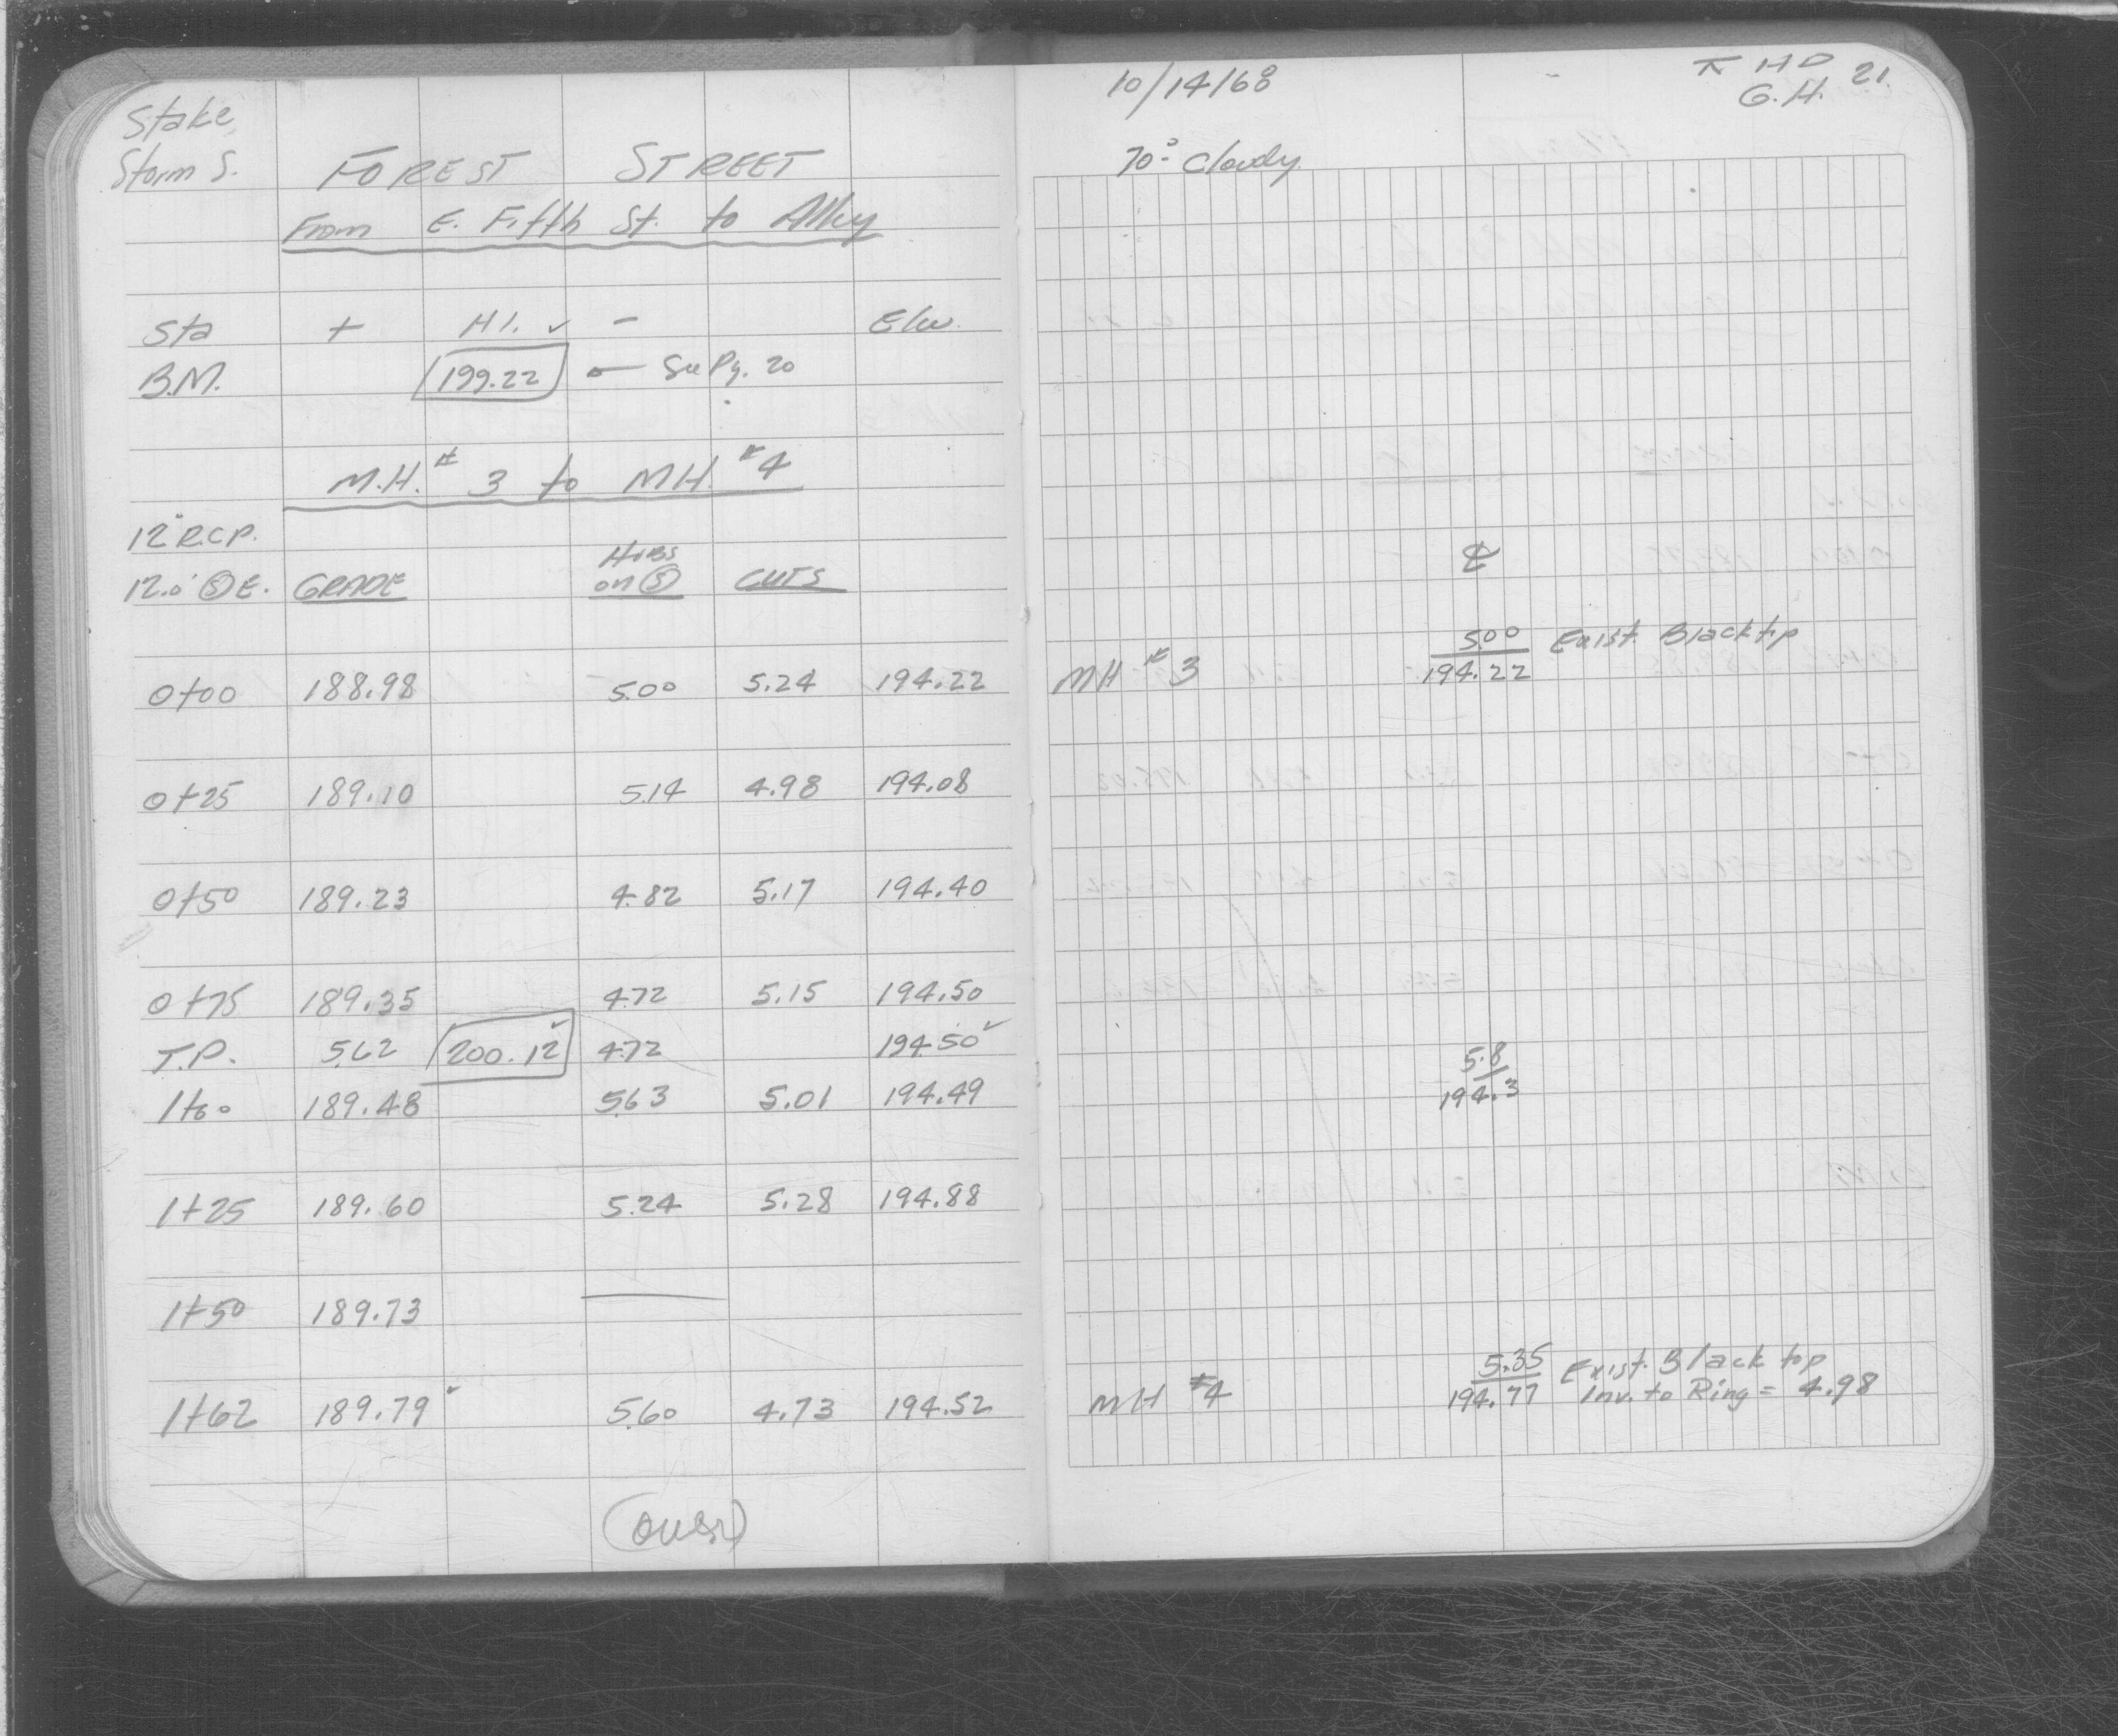 Stake
Storm S. FOREST STREET
From E. Fifth St. to Alley
Sta + H.I. ✓ - Elev.
B.M. 199.22 ← See Pg. 20
M.H. # 3 to M.H. # 4
12" R.C.P.
12.0' Ⓢ E. GRADE HUBS on Ⓢ CUTS
0+00 188.98 5.00 5.24 194.22
0+25 189.10 5.14 4.98 194.08
0+50 189.23 4.82 5.17 194.40
0+75 189.35 4.72 5.15 194.50
T.P. 5.62 200.12 ✓ 4.72 194.50 ✓
1+00 189.48 5.63 5.01 194.49
1+25 189.60 5.24 5.28 194.88
1+50 189.73 —
1+62 189.79 ✓ 5.60 4.73 194.52
(over)
10/14/68 HD 21.
G.H.
70° Cloudy
℄
5.00 Exist. Blacktop
MH # 3 194.22
5.8
194.3
5.35 Exist. Black top
MH #4 194.77 Inv. to Ring = 4.98